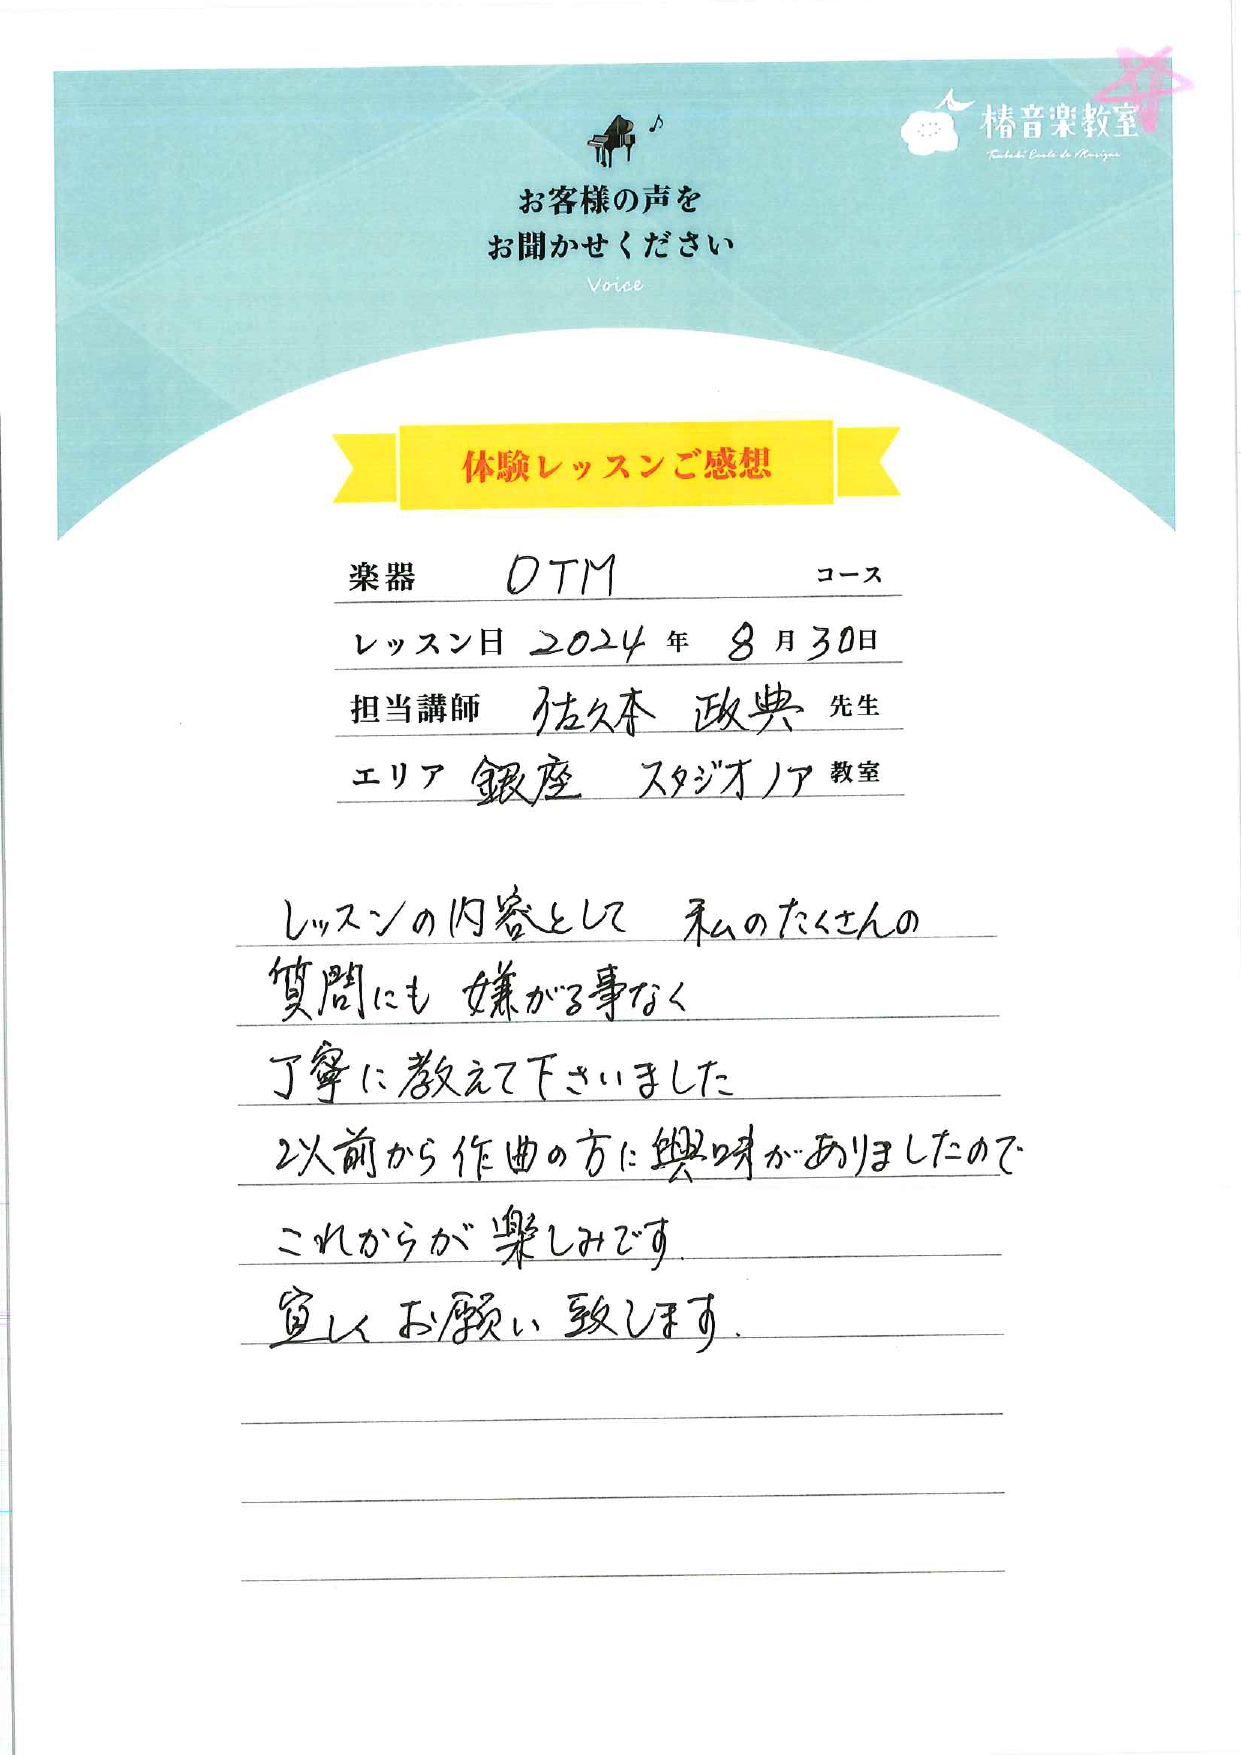 椿音楽教室
Tsubaki Ecole de Musique
お客様の声を
お聞かせください
Voice
体験レッスンご感想
楽器 DTM コース
レッスン日 2024 年 8 月 30日
担当講師 佐久本 政典 先生
エリア 銀座 スタジオノア 教室
レッスンの内容として 私のたくさんの
質問にも 嫌がる事なく
丁寧に教えて下さいました
以前から作曲の方に興味がありましたので
これからが楽しみです.
宜しくお願い致します.